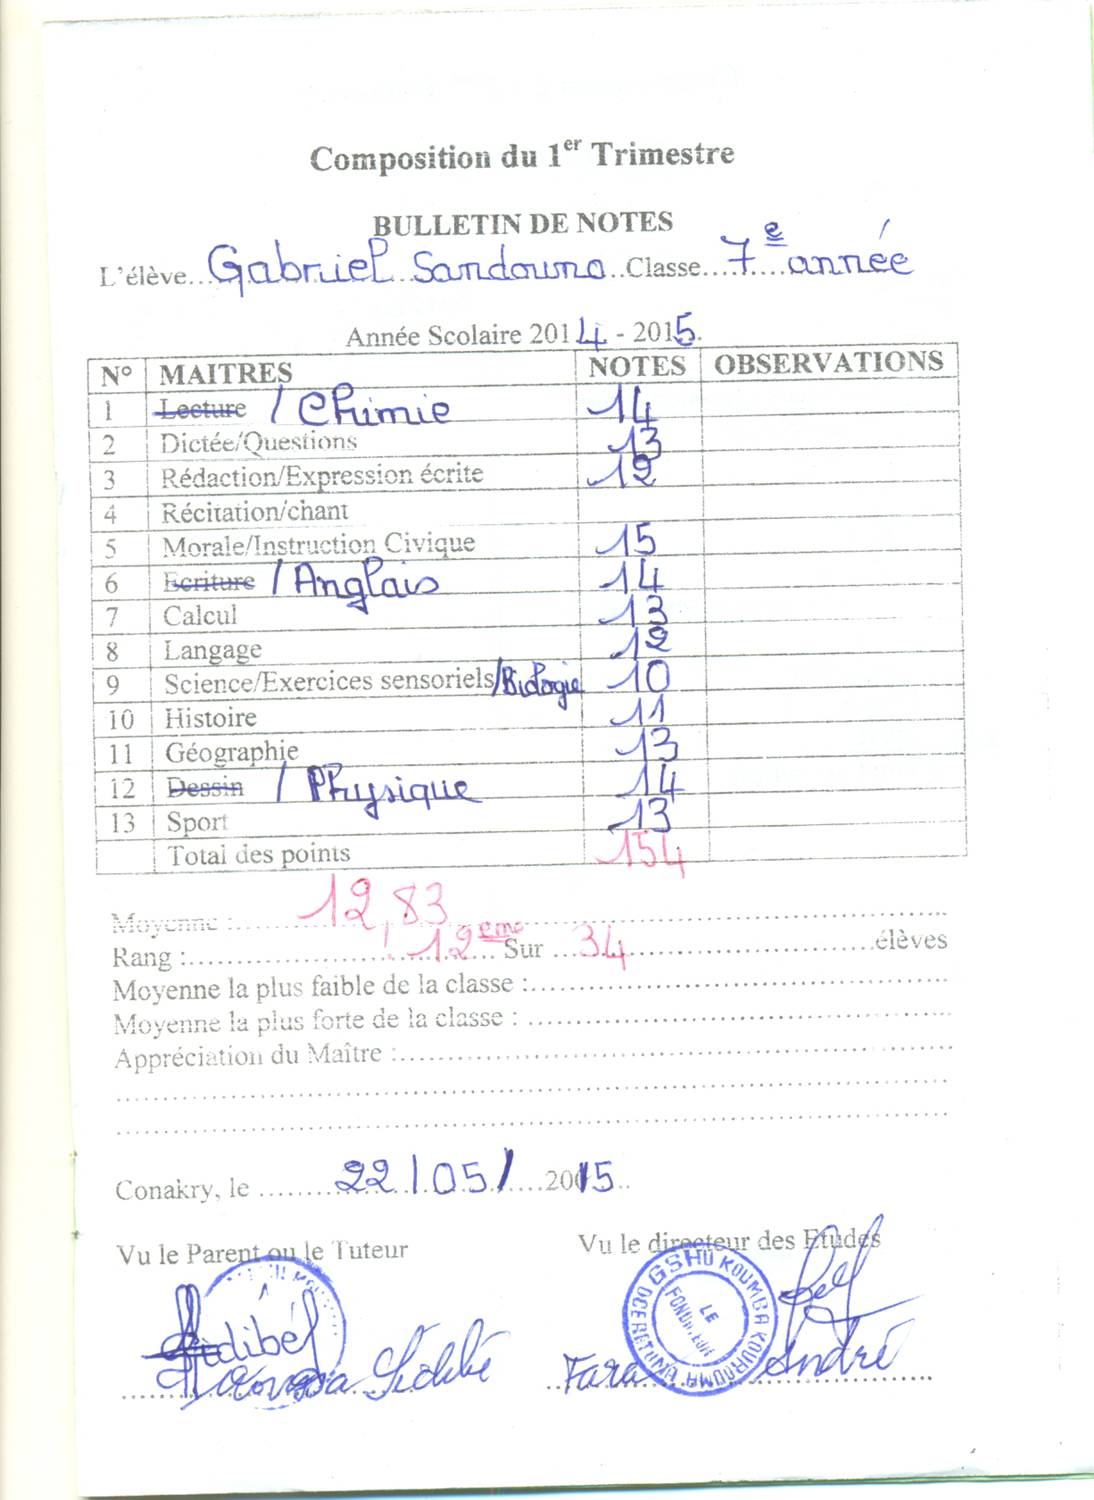 Composition du 1er Trimestre
BULLETIN DE NOTES
L'élève...Gabriel Sandouno..Classe....7e année
Année Scolaire 2014 - 2015.
N° MAITRES NOTES OBSERVATIONS
1 Lecture / Chimie 14
2 Dictée/Questions 13
3 Rédaction/Expression écrite 12
4 Récitation/chant
5 Morale/Instruction Civique 15
6 Ecriture / Anglais 14
7 Calcul 13
8 Langage 12
9 Science/Exercices sensoriels/Biologie 10
10 Histoire 11
11 Géographie 13
12 Dessin / Physique 14
13 Sport 13
Total des points 154
Moyenne :........12,83........
Rang :........12ème... Sur ...34........élèves
Moyenne la plus faible de la classe :........
Moyenne la plus forte de la classe : ........
Appréciation du Maître :........
Conakry, le ........22/05/....2015..
Vu le Parent ou le Tuteur Vu le directeur des Etudes
GSHU KOUMBA KOUROUMA
LE FONDATEUR
Sidibé
Sidibé Fara André